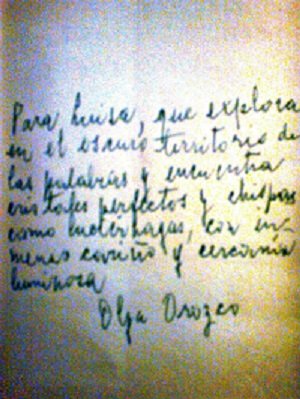 Para Luisa, que explora
en el oscuro territorio de
las palabras y encuentra
cristales perfectos y chispas
como luciérnagas, con in-
menso cariño y cercanía
luminosa
Olga Orozco